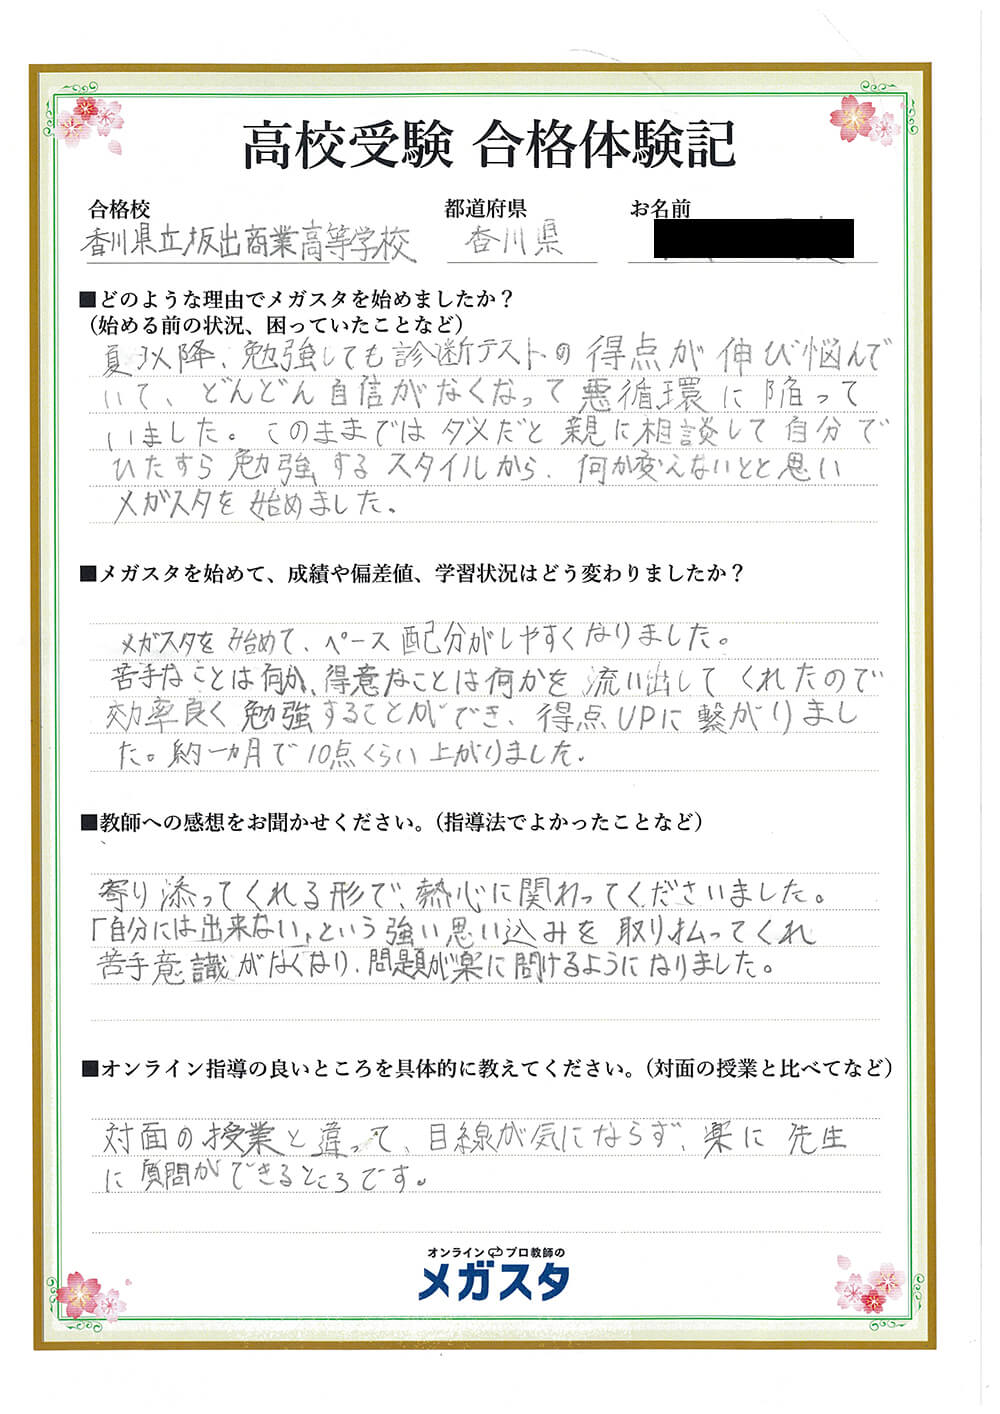 高校受験 合格体験記
合格校 都道府県 お名前
香川県立坂出商業高等学校 香川県
■どのような理由でメガスタを始めましたか？
（始める前の状況、困っていたことなど）
夏以降、勉強しても診断テストの得点が伸び悩んで
いて、どんどん自信がなくなって悪循環に陥って
いました。このままではダメだと親に相談して自分で
ひたすら勉強するスタイルから、何か変えないとと思い
メガスタを始めました。
■メガスタを始めて、成績や偏差値、学習状況はどう変わりましたか？
メガスタを始めて、ペース配分がしやすくなりました。
苦手なことは何か、得意なことは何かを流い出してくれたので
効率良く勉強することができ、得点UPに繋がりまし
た。約一カ月で10点くらい上がりました。
■教師への感想をお聞かせください。（指導法でよかったことなど）
寄り添ってくれる形で、熱心に関わってくださいました。
「自分には出来ない」という強い思い込みを取り払ってくれ
苦手意識がなくなり、問題が楽に問けるようになりました。
■オンライン指導の良いところを具体的に教えてください。（対面の授業と比べてなど）
対面の授業と違って、目線が気にならず、楽に先生
に質問ができるところです。
オンラインプロ教師の
メガスタ